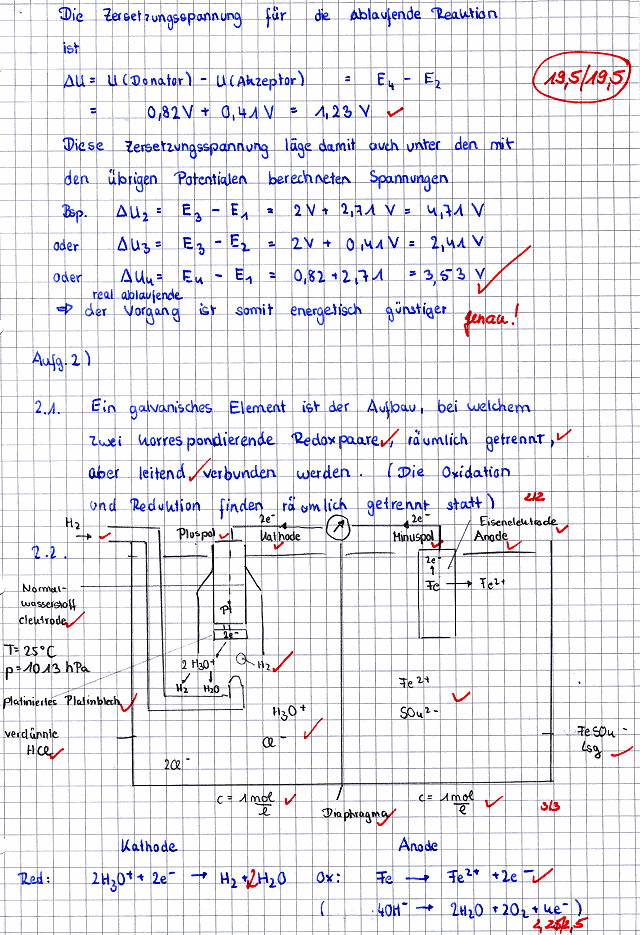 Die Zersetzungsspannung für die ablaufende Reaktion
ist
ΔU = U(Donator) - U(Akzeptor) = E₄ - E₂
19,5/19,5
= 0,82V + 0,41V = 1,23 V
Diese Zersetzungsspannung läge damit auch unter den mit
den übrigen Potentialen berechneten Spannungen
Bsp. ΔU₂ = E₃ - E₁ = 2V + 2,71V = 4,71 V
oder ΔU₃ = E₃ - E₂ = 2V + 0,41V = 2,41 V
oder ΔU₄ = E₄ - E₁ = 0,82 + 2,71 = 3,53 V
real ablaufende
⇒ der Vorgang ist somit energetisch günstiger genau!
Aufg. 2)
2.1. Ein galvanisches Element ist der Aufbau, bei welchem
zwei korrespondierende Redoxpaare, räumlich getrennt,
aber leitend verbunden werden. (Die Oxidation
und Reduktion finden räumlich getrennt statt) 2/2
H₂ 2e⁻ 2e⁻ Eisenelektrode
Pluspol Kathode Minuspol Anode
2.2.
2e⁻
Fe → Fe²⁺
Normal-
wasserstoff
elektrode
Pt
2e⁻
T = 25°C
p = 1013 hPa
2H₃O⁺ H₂
H₂ H₂O
platiniertes Platinblech
Fe²⁺
H₃O⁺ SO₄²⁻
verdünnte
HCl
Cl⁻
FeSO₄-
Lsg
2Cl⁻
c = 1 mol/l c = 1 mol/l
Diaphragma 3/3
Kathode Anode
Red: 2H₃O⁺ + 2e⁻ → H₂ + 2H₂O Ox: Fe → Fe²⁺ + 2e⁻
( 4OH⁻ → 2H₂O + 2O₂ + 4e⁻ )